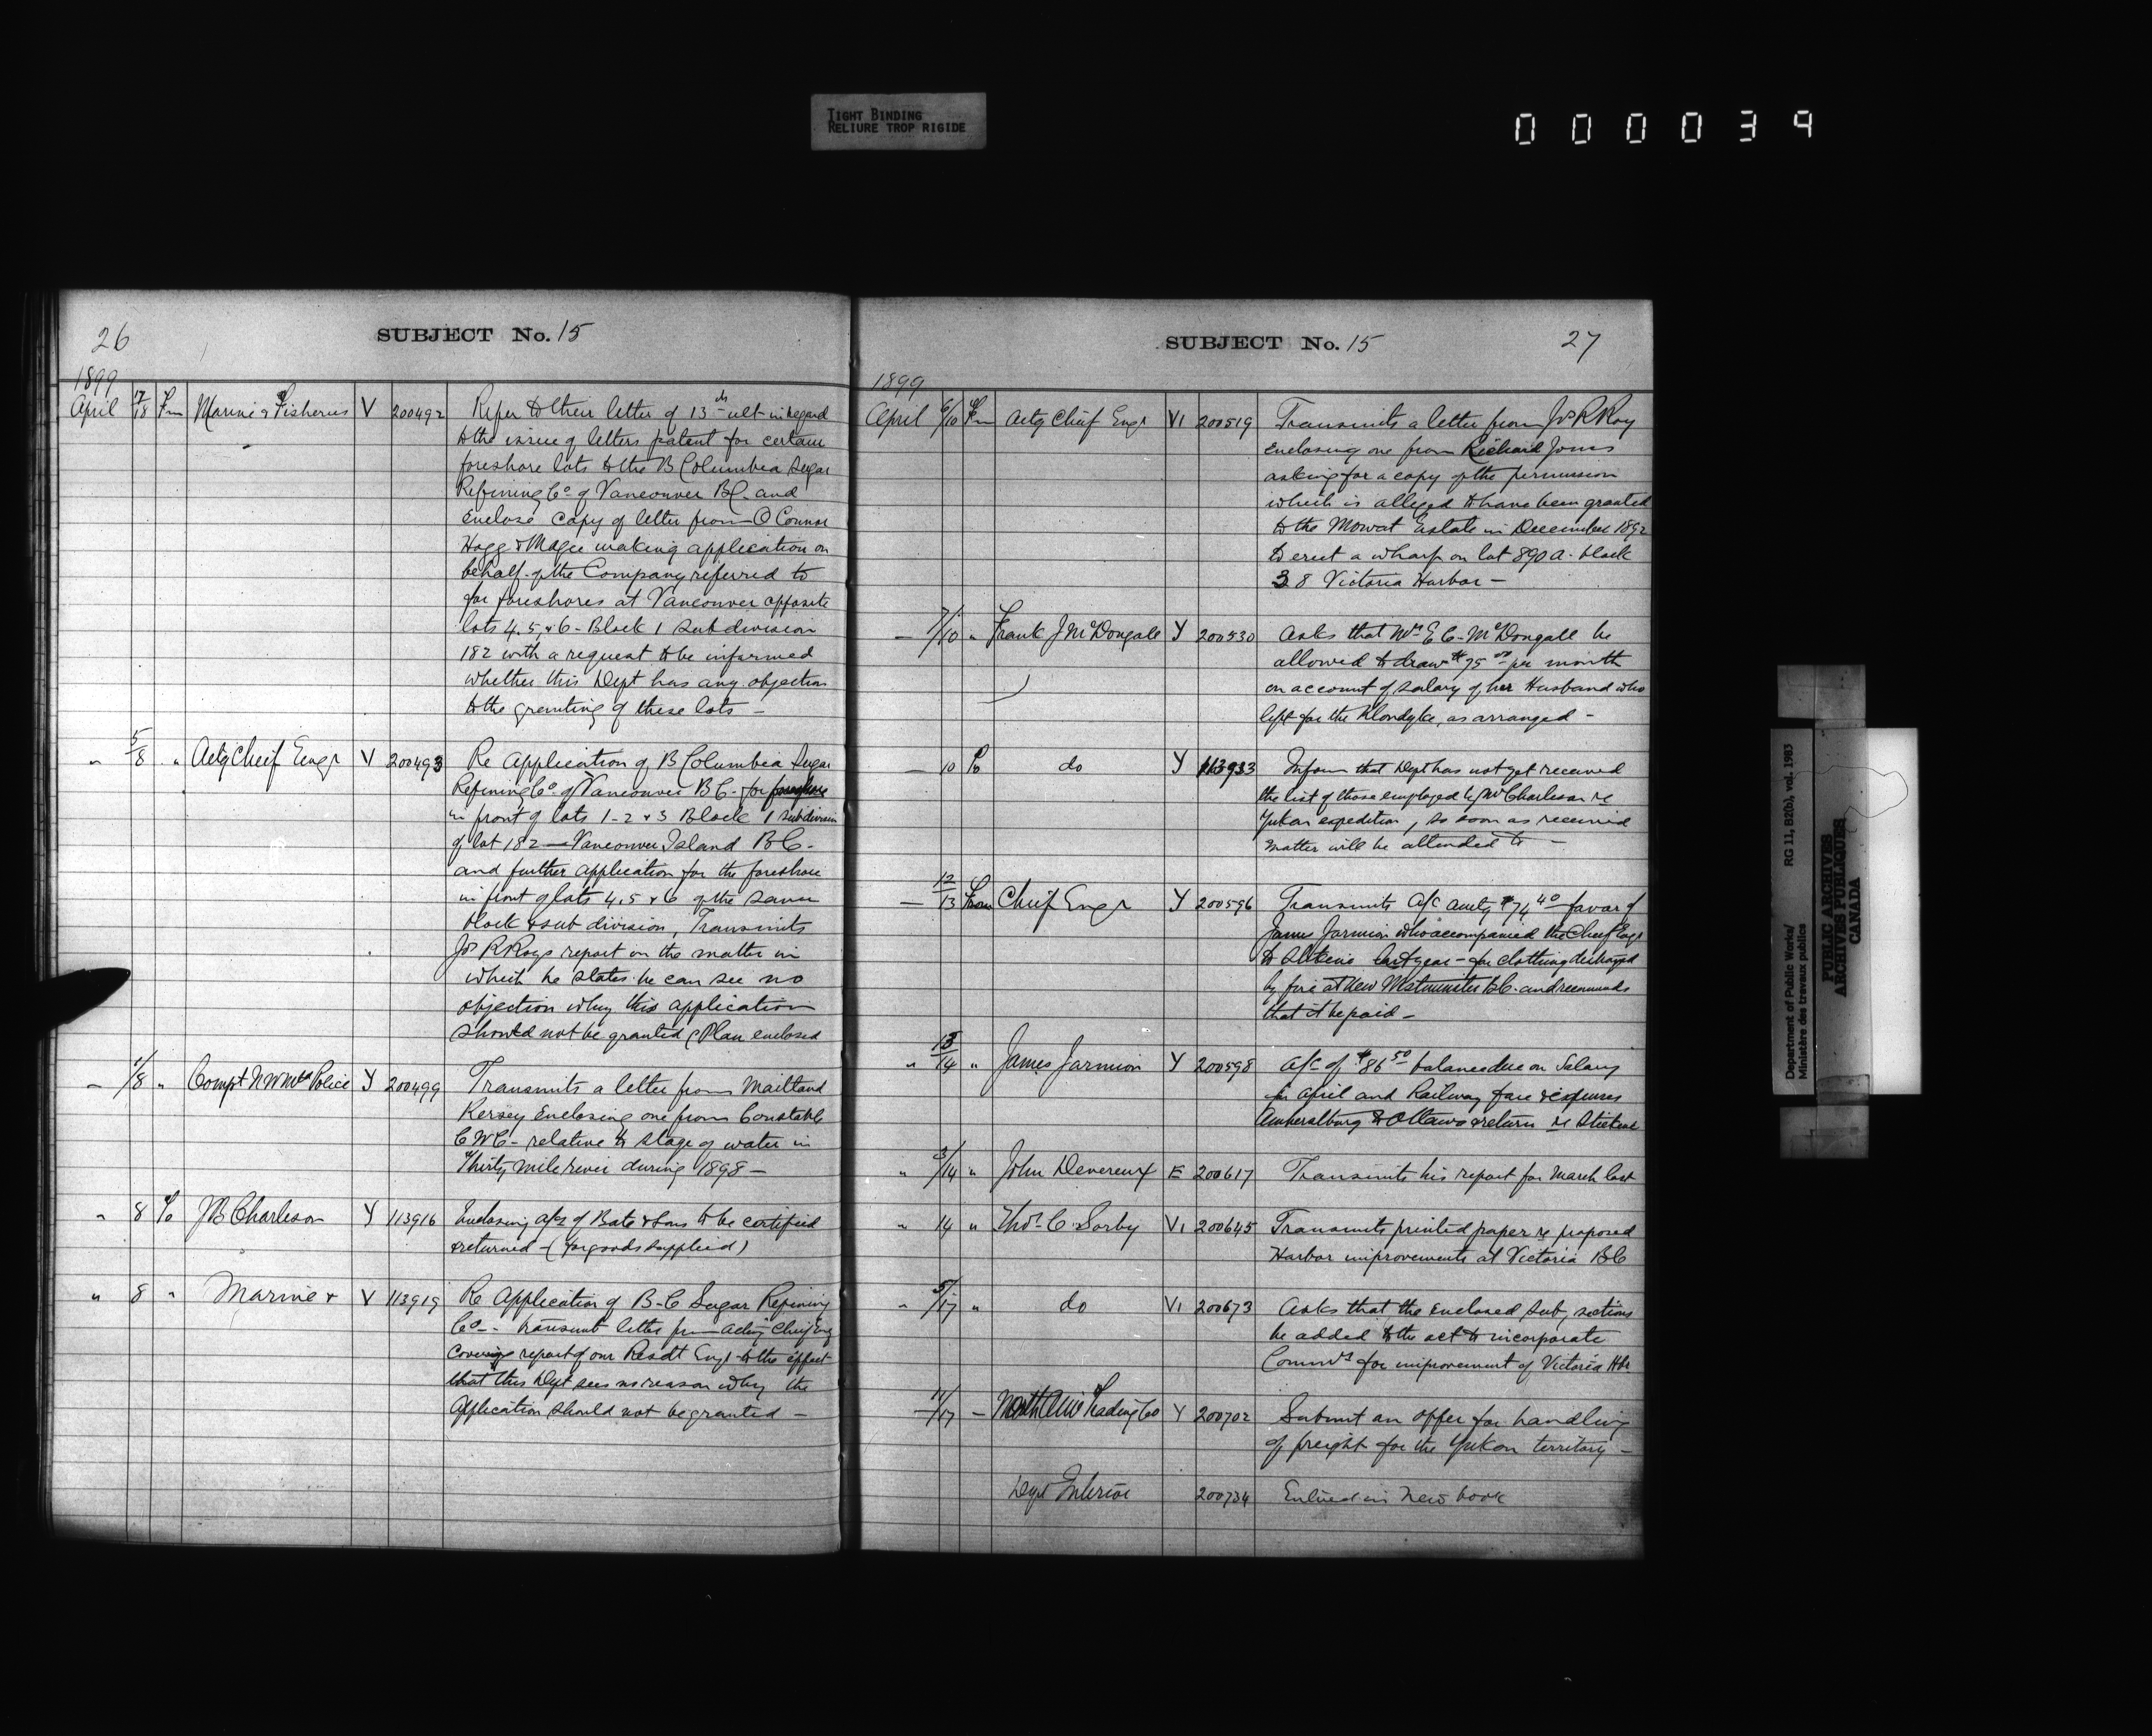 TIGHT BINDING
RELIURE TROP RIGIDE
000039
26
SUBJECT No. 15
1899
April 17/18 Fm Marine & Fisheries V 200492 Refer to their letter of 13th ult in regard
to the issue of letters patent for certain
foreshore lots to the B Columbia Sugar
Refining Co of Vancouver BC. and
enclose copy of letter from O Connor
Hogg & Magee making application on
behalf of the Company referred to
for foreshores at Vancouver opposite
lots 4.5, & 6 - Block 1 Subdivision
182 with a request to be informed
whether this Dept has any objection
to the granting of these lots —
" 5/8 " Actg Chief Engr V 200493 Re Application of B Columbia Sugar
Refining Co of Vancouver BC - for foreshore
in front of lots 1-2 & 3 Block 1 subdivision
of lot 182 — Vancouver Island BC -
and further application for the foreshore
in front of lots 4,5 & 6 of the same
block & sub division, Transmits
Js R Roys report on the matter in
which he states he can see no
objection why this application
should not be granted (Plan enclosed
— 1/8 " Compt NW Mtd Police Y 200499 Transmits a letter from Maitland
Kersey enclosing one from Constable
C W C - relative to stage of water in
Thirty mile river during 1898 —
" 8 To JB Charleson Y 113916 Enclosing a/cs of Bate & Sons to be certified
& returned - (for goods supplied)
" 8 " Marine & V 113919 Re Application of B-C Sugar Refining
Co — transmit letter from Acting Chief Eng
covering report of our Resdt Engr to the effect
that this Dept sees no reason why the
Application should not be granted —
SUBJECT No. 15
27
1899
April 6/10 Fm Actg Chief Engr VI 200519 Transmits a letter from Js R Roy
enclosing one from Richard Jones
asking for a copy of the permission
which is alleged to have been granted
to the Mowat Estate in December 1892
to erect a wharf on lot 890 a - block
38 Victoria Harbor —
— 7/10 " Frank J McDougall Y 200530 Asks that Mrs E C - McDougall be
allowed to draw $75 00 per month
on account of salary of her Husband who
left for the Klondyke, as arranged -
— 10 To do Y 113933 Inform that Dept has not yet received
the list of those employed by Mr Charleson re
Yukon expedition, so soon as received
matter will be attended to —
— 12/13 From Chief Engr Y 200596 Transmits a/c amtg $74 40 favor of
James Jarmion who accompanied the Chief Engr
to Stikine last year - for clothing destroyed
by fire at New Westminster BC. and recommends
that it be paid —
" 13/14 " James Jarmion Y 200598 a/c of $86 50 balance due on Salary
for April and Railway fare & expenses
Amherstburg to Ottawa & return re Stickine
" 3/14 " John Devereux E 200617 Transmits his report for March last
" 14 " Thos. C. Sorby VI 200645 Transmits printed paper re proposed
Harbor improvements at Victoria BC
" 5/17 " do VI 200673 Asks that the enclosed sub, sections
be added to the act to incorporate
Commrs for improvement of Victoria Hbr.
— 11/17 — North Amn Trading Co Y 200702 Submit an offer for handling
of freight for the Yukon territory —
Dept Interior 200734 Entered in New book
Department of Public Works/ RG 11, B2(b), vol. 1983
Ministère des travaux publics
PUBLIC ARCHIVES
ARCHIVES PUBLIQUES
CANADA